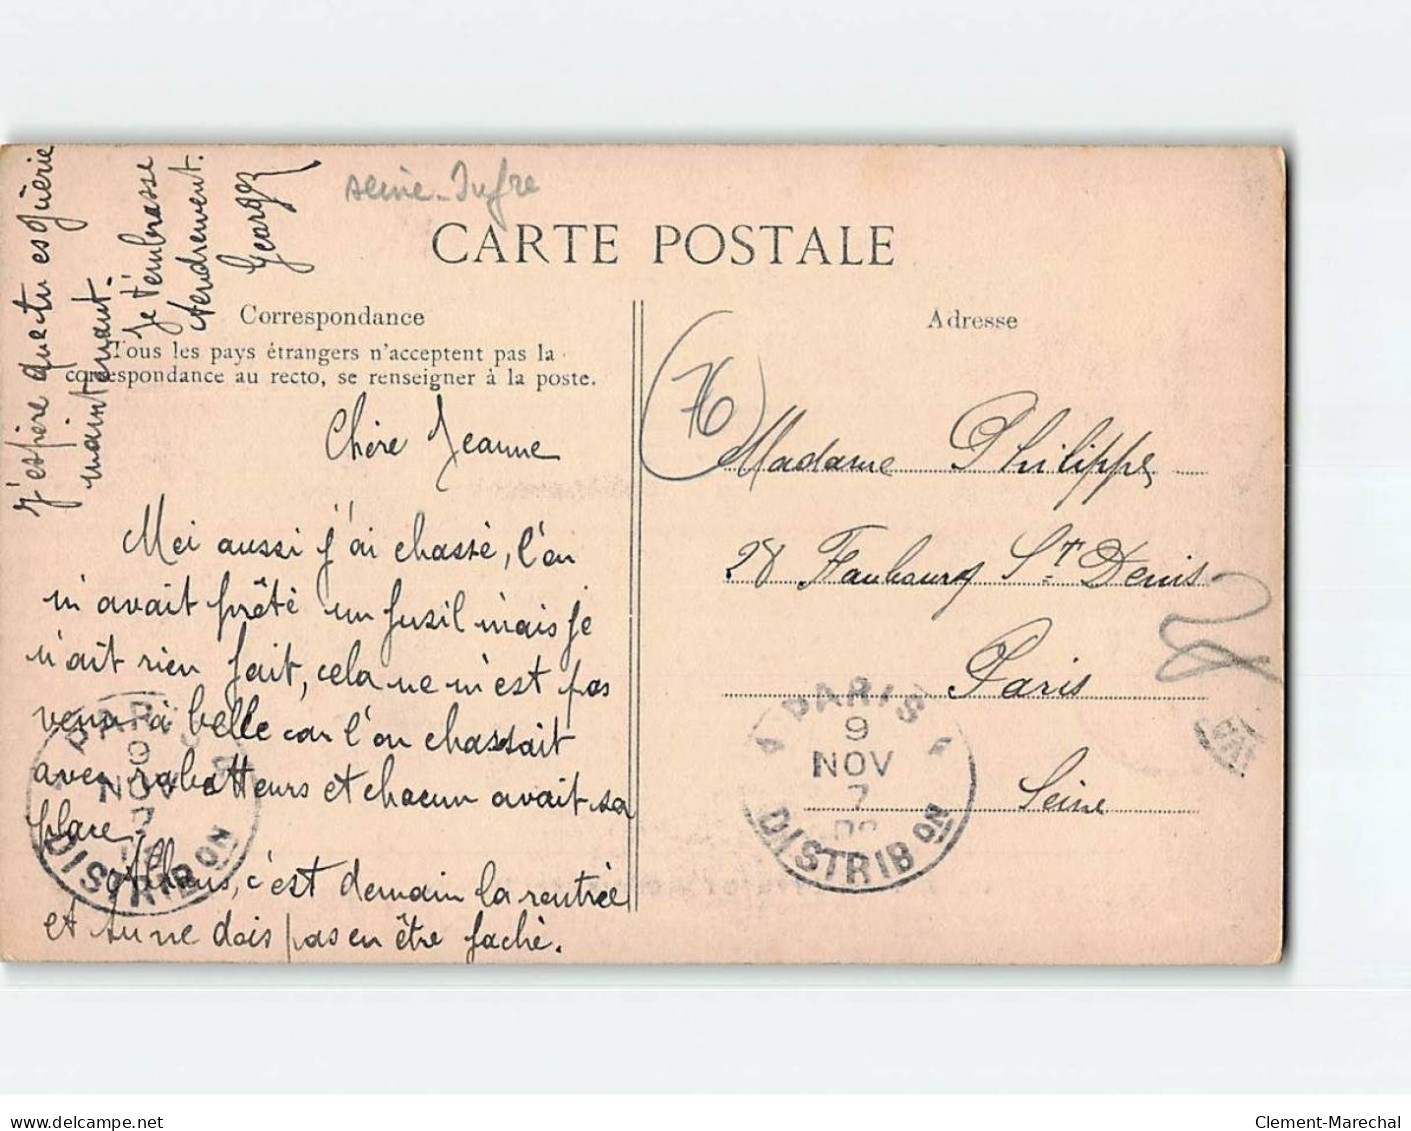 seine-Infre
CARTE POSTALE
Correspondance
Tous les pays étrangers n'acceptent pas la
correspondance au recto, se renseigner à la poste.
Adresse
76
Chère Jeanne
Moi aussi j'ai chassé, l'on
m'avait prêté un fusil mais je
n'ait rien fait, cela ne m'est pas
venu à belle car l'on chassait
avec rabatteurs et chacun avait sa
place.
Allons, c'est demain la rentrée
et tu ne dois pas en être fachè.
J'espère que tu es guèrie
maintenant.
Je t'embrasse
tendrement.
Georges
Madame Philippe
28 Faubourg St. Denis
Paris
Seine
28
PARIS
9
NOV
7
DISTRIBON
PARIS
9
NOV
7
DISTRIBON
delcampe.net
Clement-Marechal